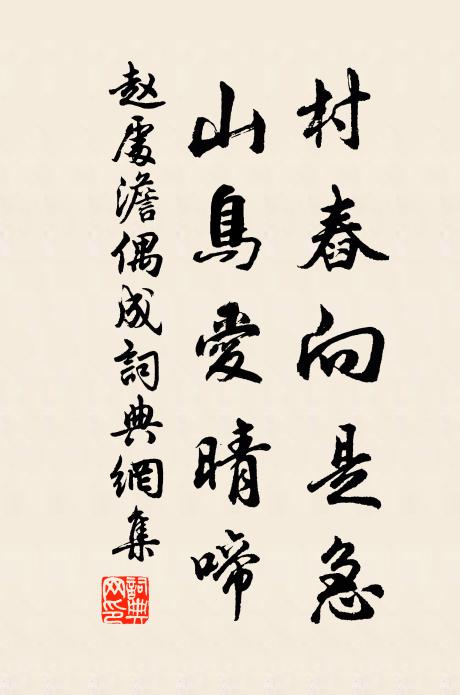 村舂向是急
山鳥愛晴啼
赵處澹偶成詞典網集
詞典网印